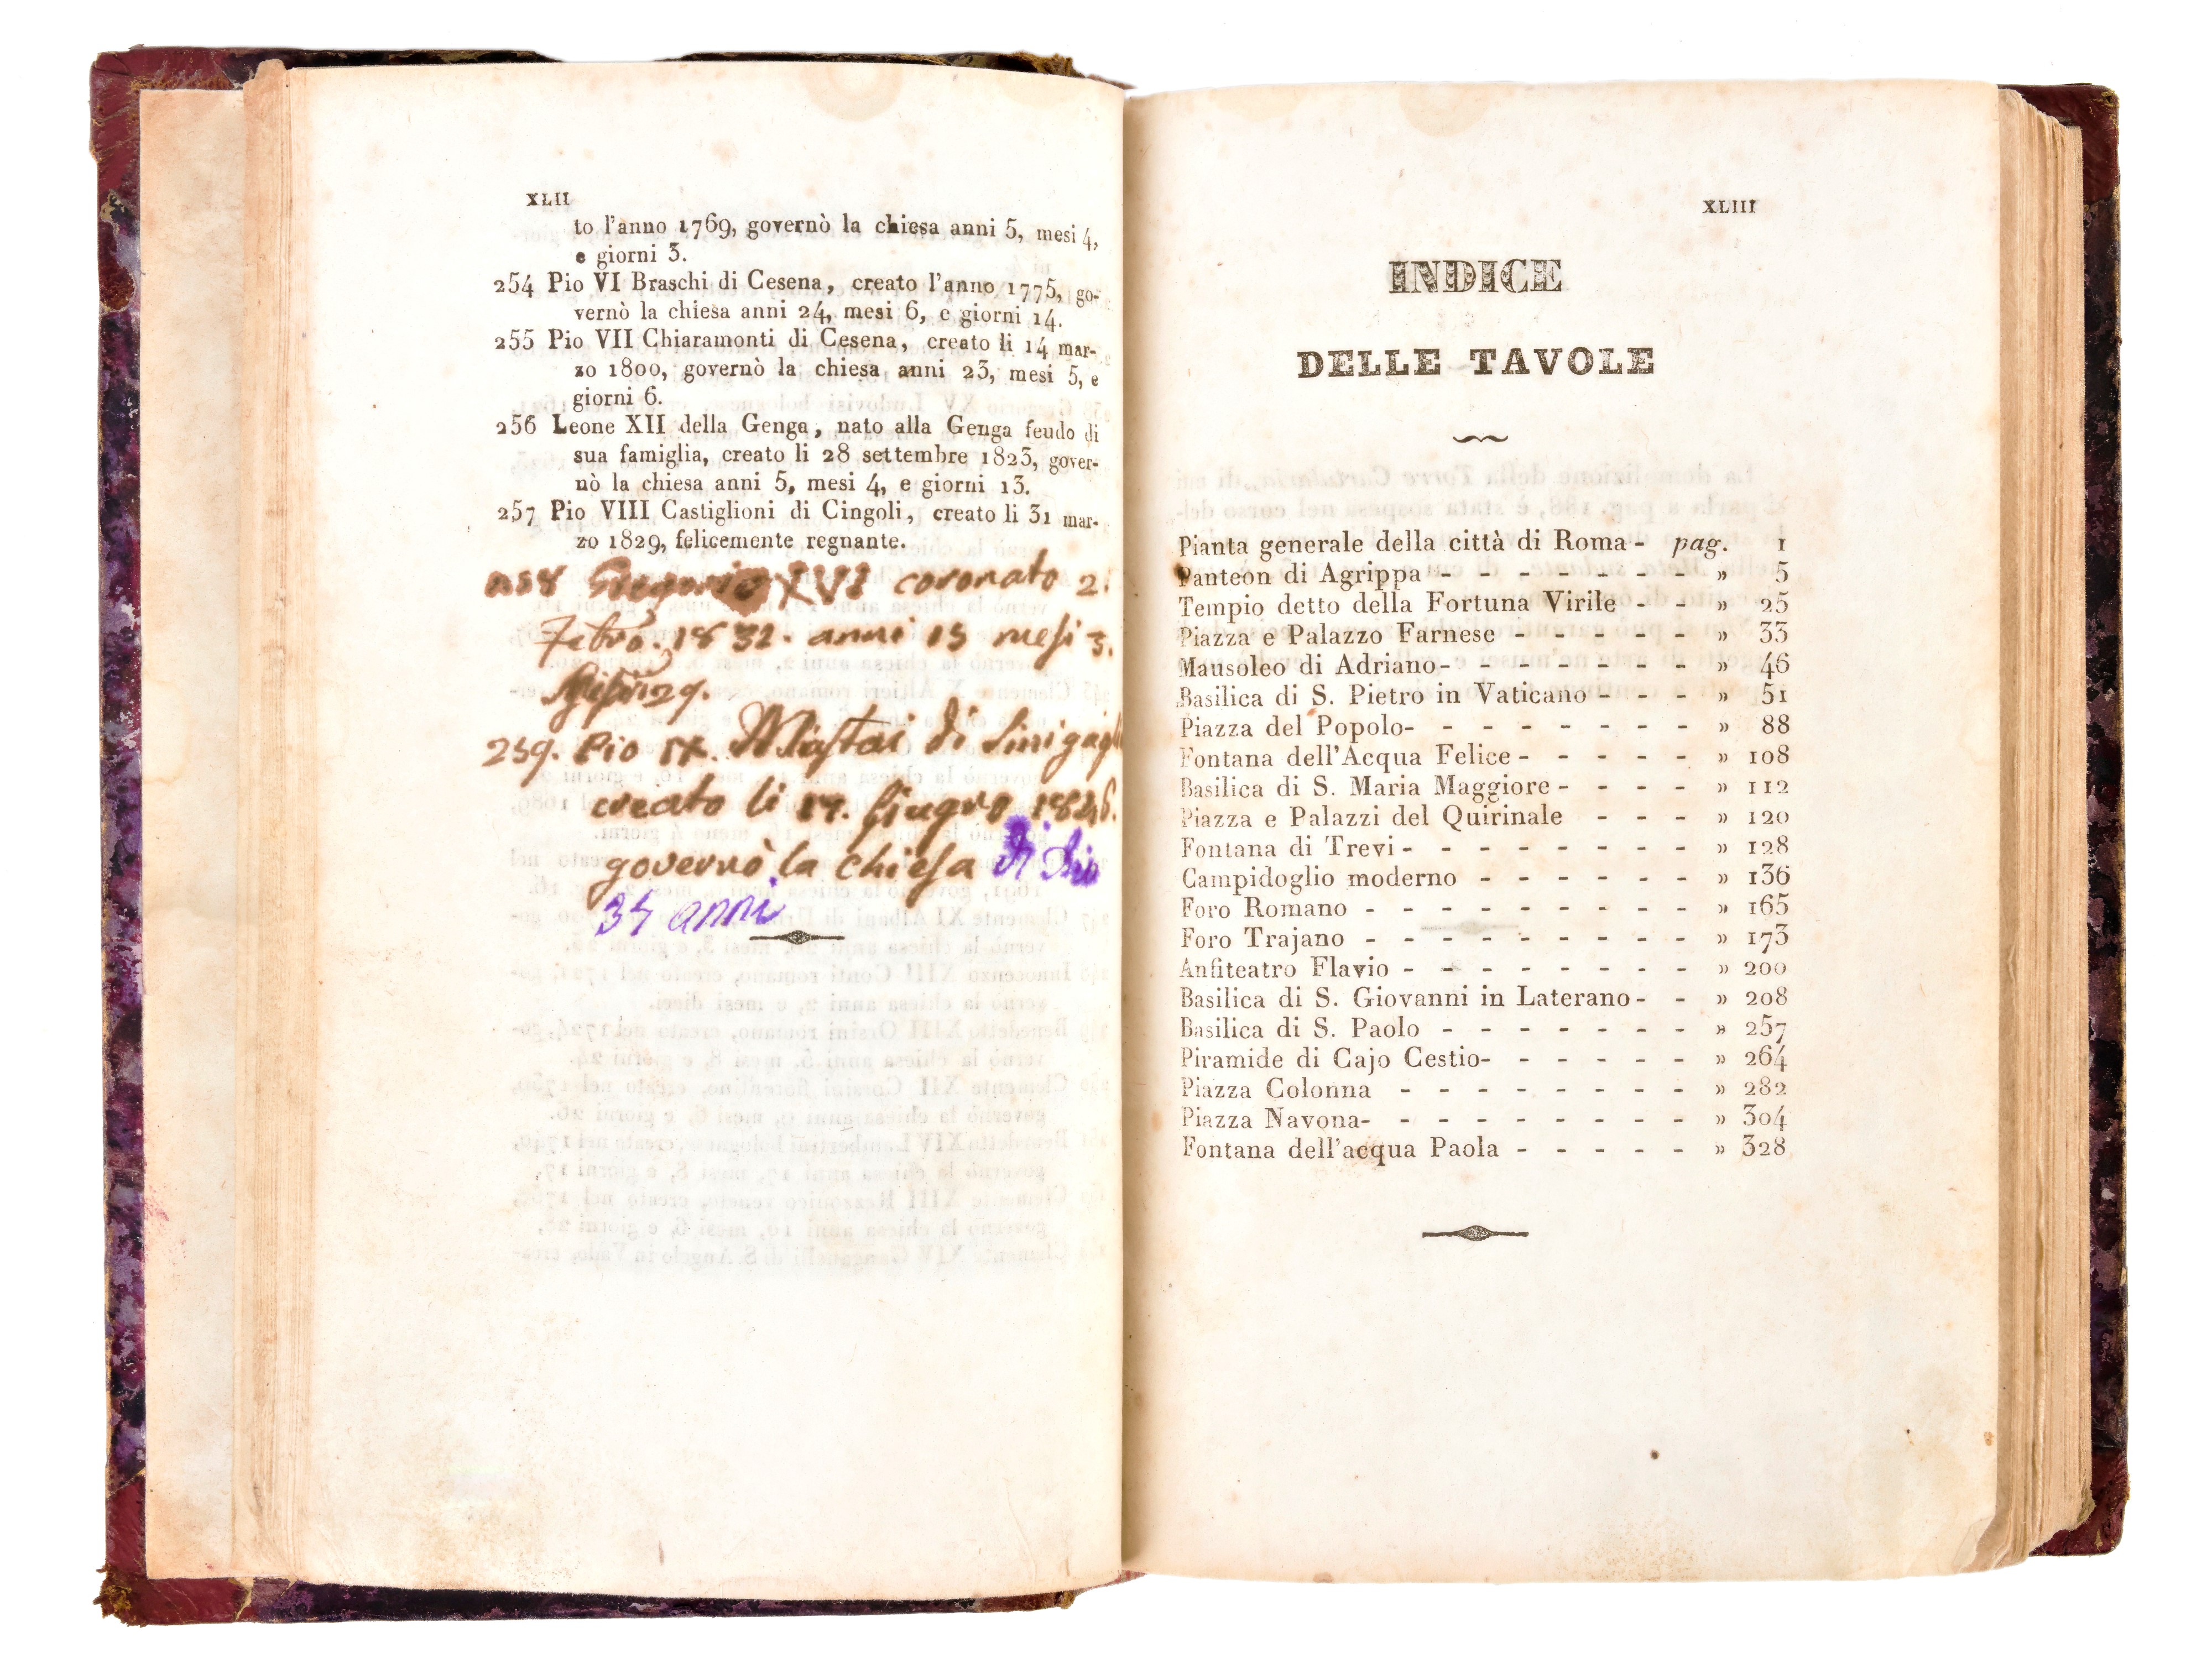 XLII
to l'anno 1769, governò la chiesa anni 5, mesi 4,
e giorni 3.
254 Pio VI Braschi di Cesena, creato l'anno 1775, go-
vernò la chiesa anni 24, mesi 6, e giorni 14.
255 Pio VII Chiaramonti di Cesena, creato li 14 mar-
zo 1800, governò la chiesa anni 23, mesi 5, e
giorni 6.
256 Leone XII della Genga, nato alla Genga feudo di
sua famiglia, creato li 28 settembre 1823, gover-
nò la chiesa anni 5, mesi 4, e giorni 13.
257 Pio VIII Castiglioni di Cingoli, creato li 31 mar-
zo 1829, felicemente regnante.
258 Gregorio XVI coronato 2.
Febro. 1832. anni 15 mesi 3.
259. Pio IX. Mastai di Sinigagli
creato li 17. Giugno 1846.
governò la chiesa di Dio
35 anni
XLIII
INDICE
DELLE TAVOLE
Pianta generale della città di Roma - pag. 1
Panteon di Agrippa - - - - - - - - » 5
Tempio detto della Fortuna Virile - - » 25
Piazza e Palazzo Farnese - - - - - - » 33
Mausoleo di Adriano - - - - - - - - » 46
Basilica di S. Pietro in Vaticano - - - » 51
Piazza del Popolo - - - - - - - - » 88
Fontana dell'Acqua Felice - - - - - » 108
Basilica di S. Maria Maggiore - - - - » 112
Piazza e Palazzi del Quirinale - - - » 120
Fontana di Trevi - - - - - - - - » 128
Campidoglio moderno - - - - - - » 136
Foro Romano - - - - - - - - - » 165
Foro Trajano - - - - - - - - - » 173
Anfiteatro Flavio - - - - - - - - » 200
Basilica di S. Giovanni in Laterano - - » 208
Basilica di S. Paolo - - - - - - - » 257
Piramide di Cajo Cestio - - - - - - » 264
Piazza Colonna - - - - - - - - » 282
Piazza Navona - - - - - - - - - » 304
Fontana dell'acqua Paola - - - - - » 328